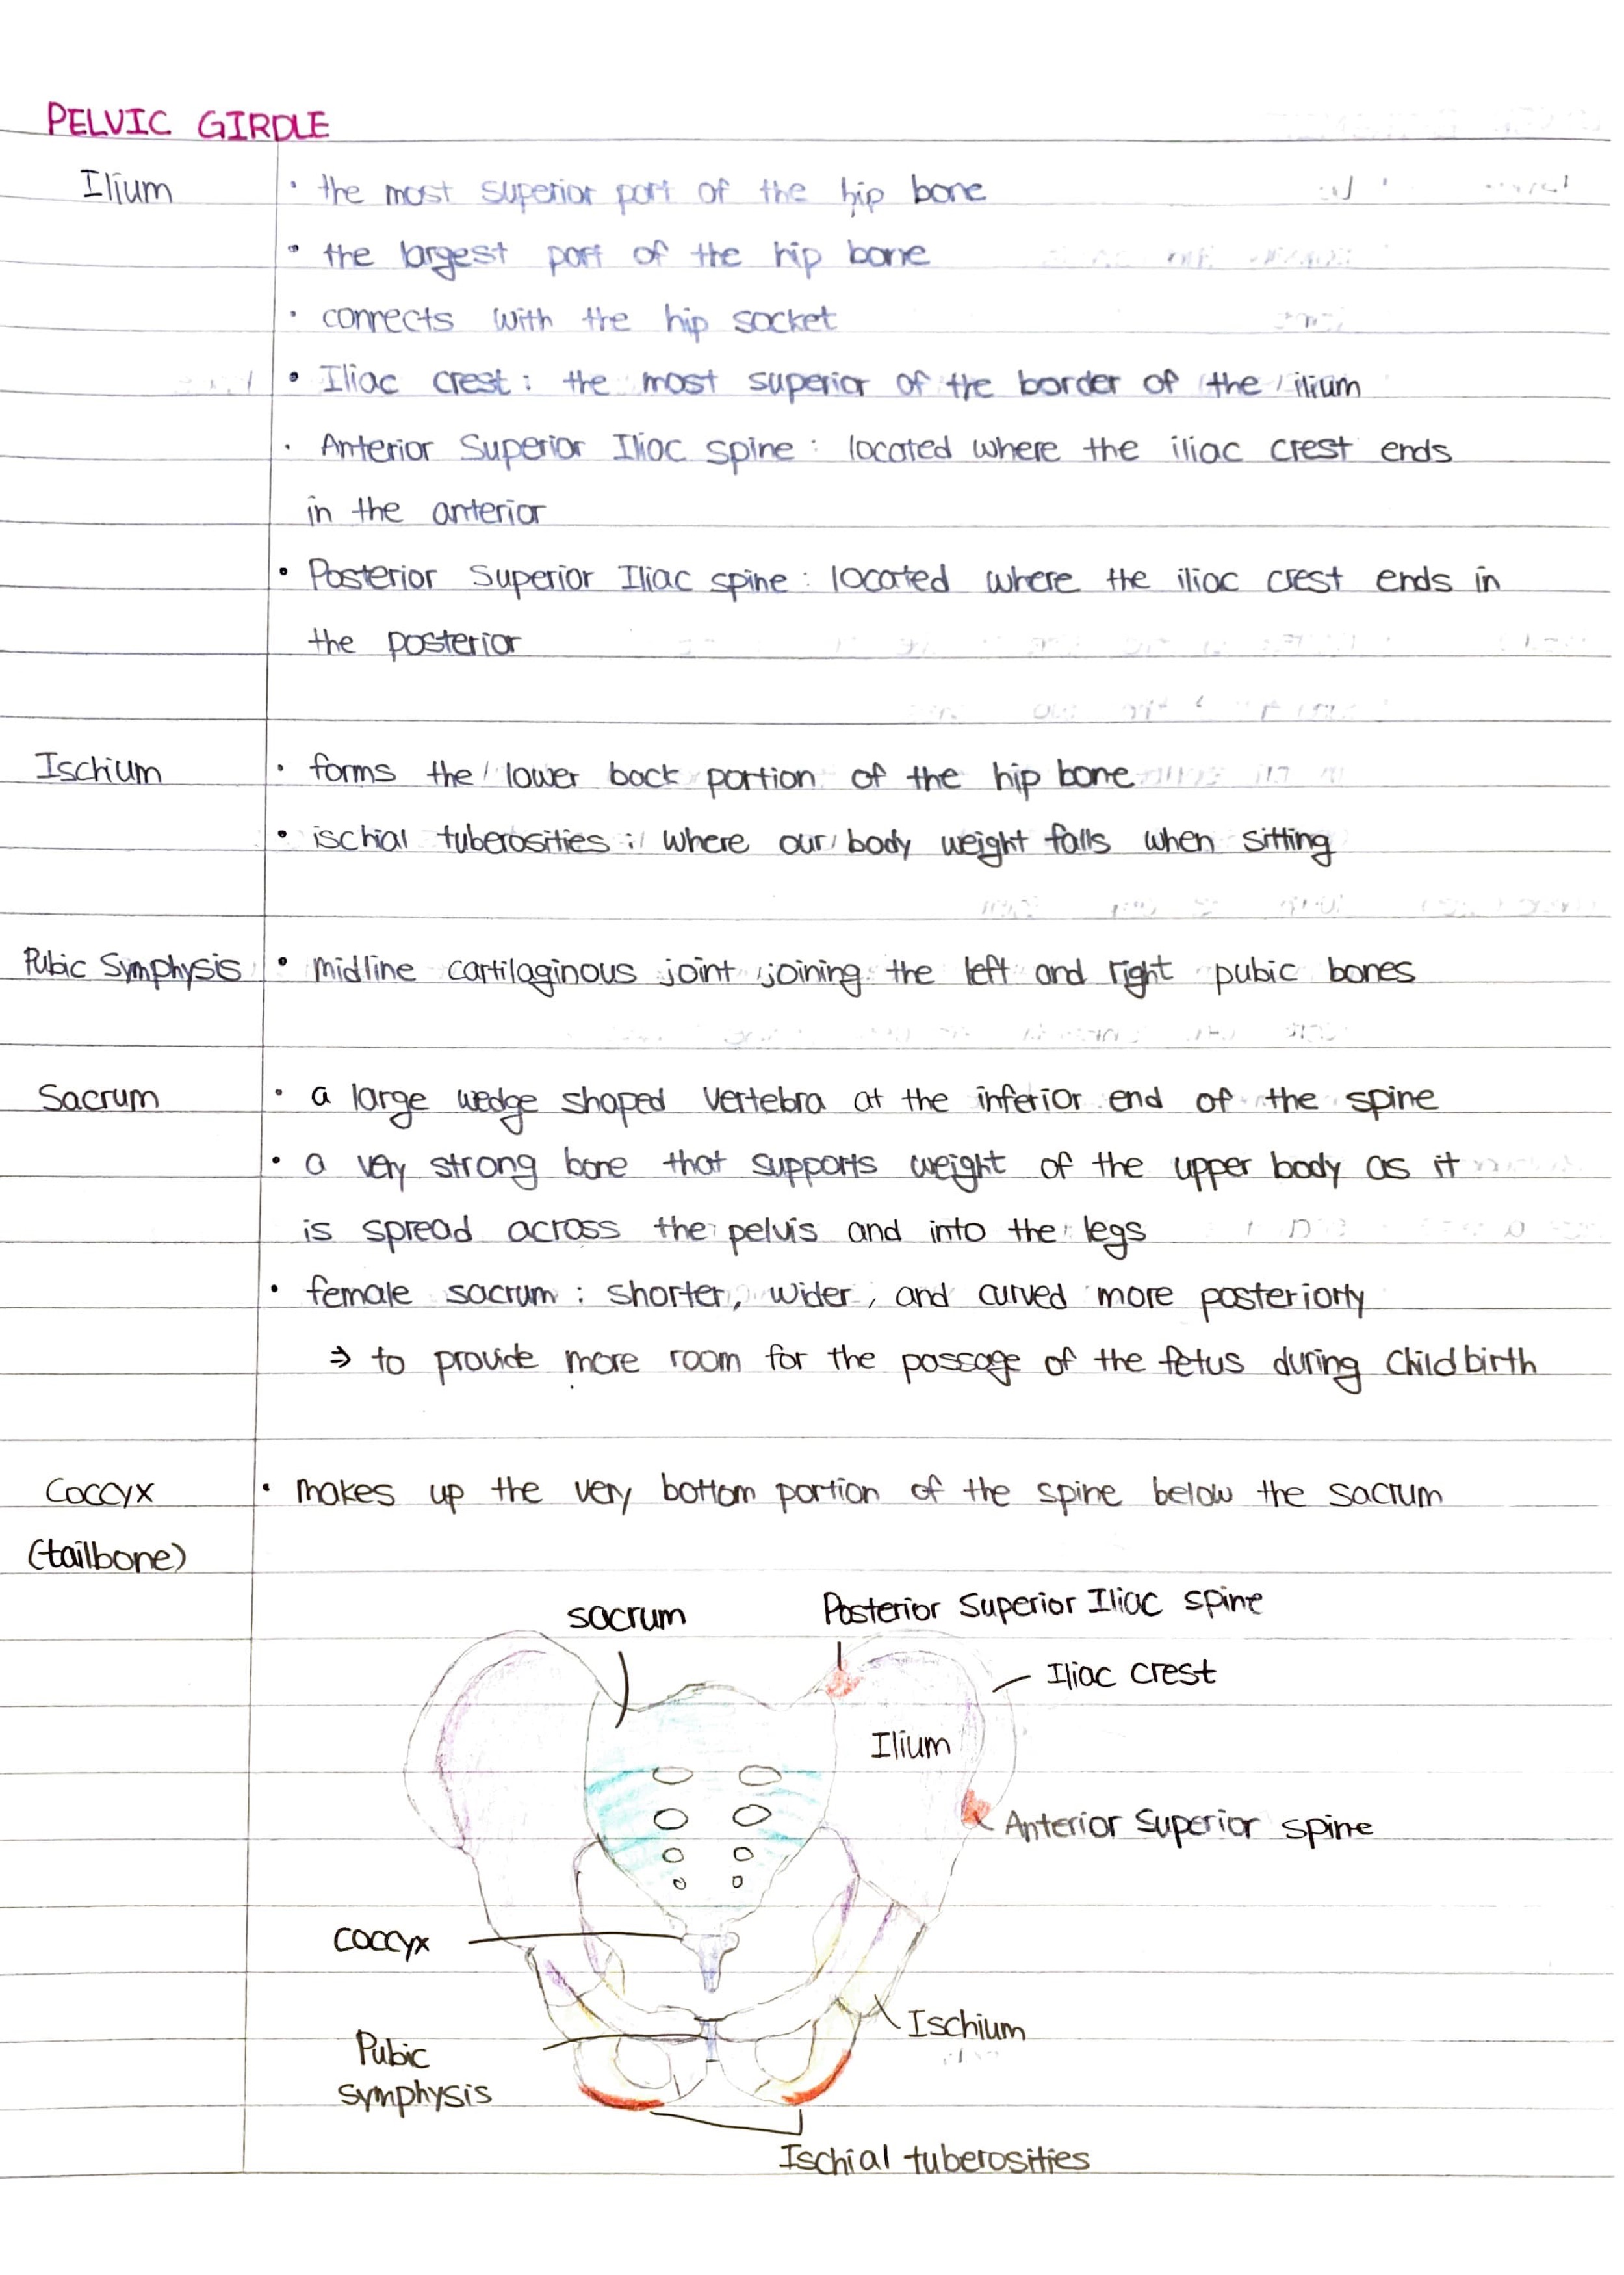 PELVIC GIRDLE
Ilium · the most superior part of the hip bone
· the largest part of the hip bone
· connects with the hip socket
· Iliac crest : the most superior of the border of the ilium
· Anterior Superior Iliac spine : located where the iliac crest ends
in the anterior
· Posterior Superior Iliac spine : located where the iliac crest ends in
the posterior
Ischium · forms the lower back portion of the hip bone
· ischial tuberosities : where our body weight falls when sitting
Pubic Symphysis · midline cartilaginous joint joining the left and right pubic bones
Sacrum · a large wedge shaped vertebra at the inferior end of the spine
· a very strong bone that supports weight of the upper body as it
is spread across the pelvis and into the legs
· female sacrum : shorter, wider, and curved more posteriorly
⇒ to provide more room for the passage of the fetus during childbirth
Coccyx · makes up the very bottom portion of the spine below the sacrum
(tailbone)
sacrum Posterior Superior Iliac spine
Iliac crest
Ilium
Anterior Superior spine
coccyx
Ischium
Pubic
symphysis
Ischial tuberosities